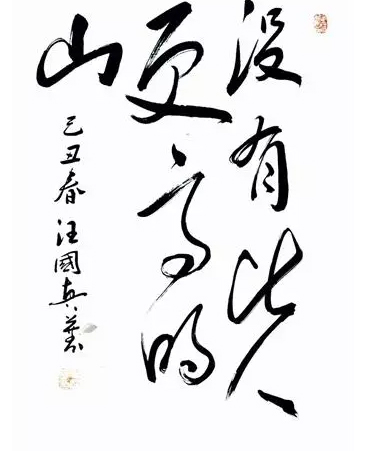 没有比人
更高的
山
己丑春汪國真